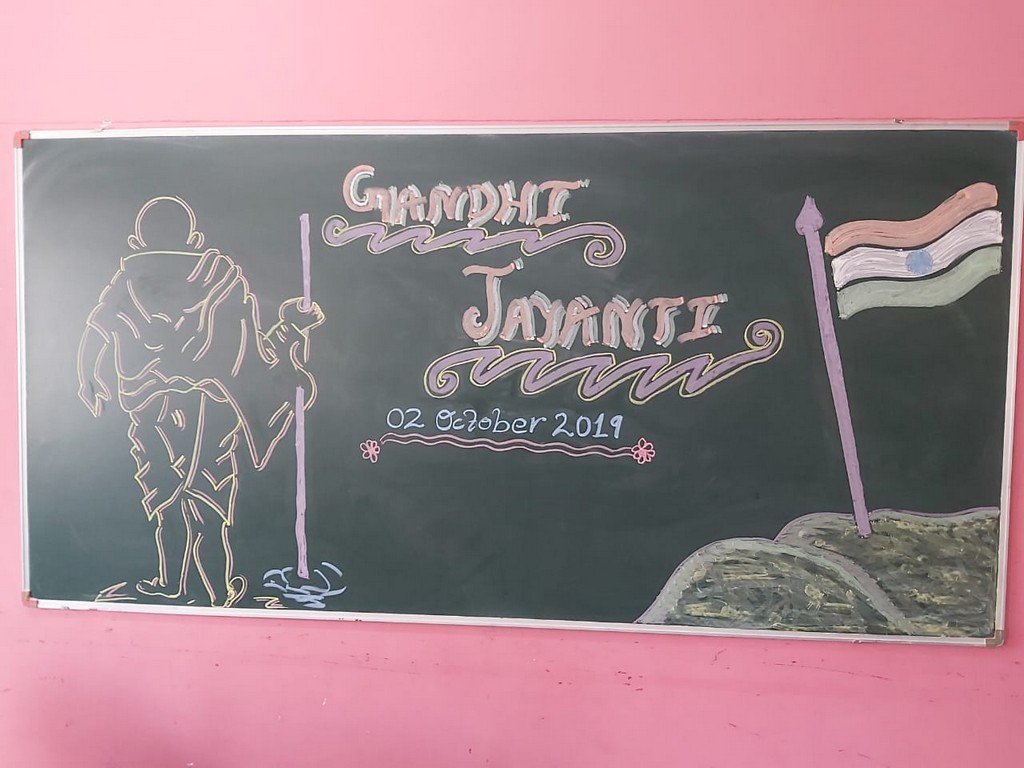 GANDHI
JAYANTI
02 October 2019